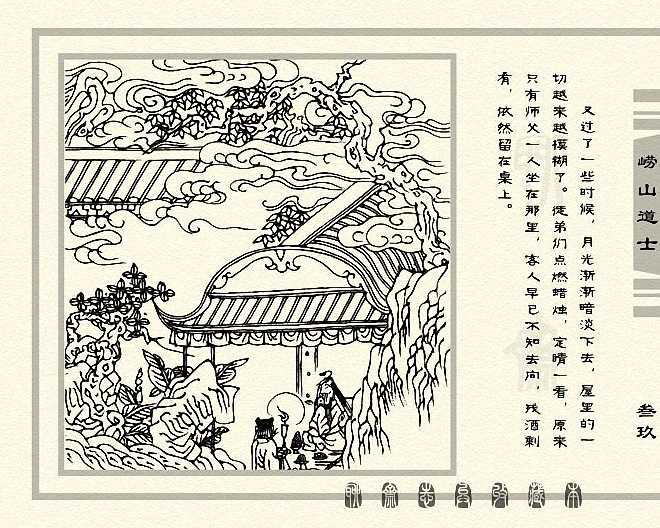 又过了一些时候，月光渐渐暗淡下去，屋里的一
切越来越模糊了。徒弟们点燃蜡烛，定睛一看，原来
只有师父一人坐在那里，客人早已不知去向，残酒剩
肴，依然留在桌上。
崂山道士
叁玖
聊斋志异收藏本